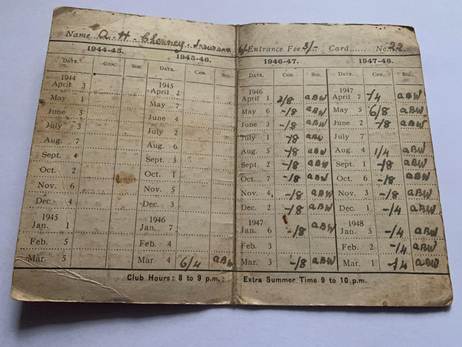 Name A. H. Insurance Entrance Fee 3/- Card No. 22
1944-45. 1945-46. 1946-47. 1947-48.
Date. Con. Sec. Date. Con. Sec. Date. Con. Sec. Date. Con. Sec.
1944 1945 1946 1947
April 3 April 2 April 1 2/8 ABW April 7 -/4 ABW
May 1 May 7 May 6 -/8 ABW May 5 6/8 ABW
June 5 June 4 June 3 -/8 ABW June 2 -/8 ABW
July 3 July 2 July 1 -/8 ABW July 7
Aug. 7 Aug. 6 Aug. 5 -/8 ABW Aug. 4 1/4 ABW
Sept. 4 Sept. 3 Sept. 2 -/8 ABW Sept. 1 -/8 ABW
Oct. 2 Oct. 1 Oct. 7 -/8 ABW Oct. 6 -/8 ABW
Nov. 6 Nov. 5 Nov. 4 -/8 ABW Nov. 3 -/8 ABW
Dec. 4 Dec. 3 Dec. 2 -/8 ABW Dec. 1 -/4 ABW
1945 1946 1947 1948
Jan. 1 Jan. 7 Jan. 6 -/8 ABW Jan. 5 -/4 ABW
Feb. 5 Feb. 4 Feb. 3 Feb. 2 -/4 ABW
Mar. 5 Mar. 4 6/4 ABW Mar. 3 -/8 ABW Mar. 1 -/4 ABW
Club Hours: 8 to 9 p.m.; Extra Summer Time 9 to 10 p.m.